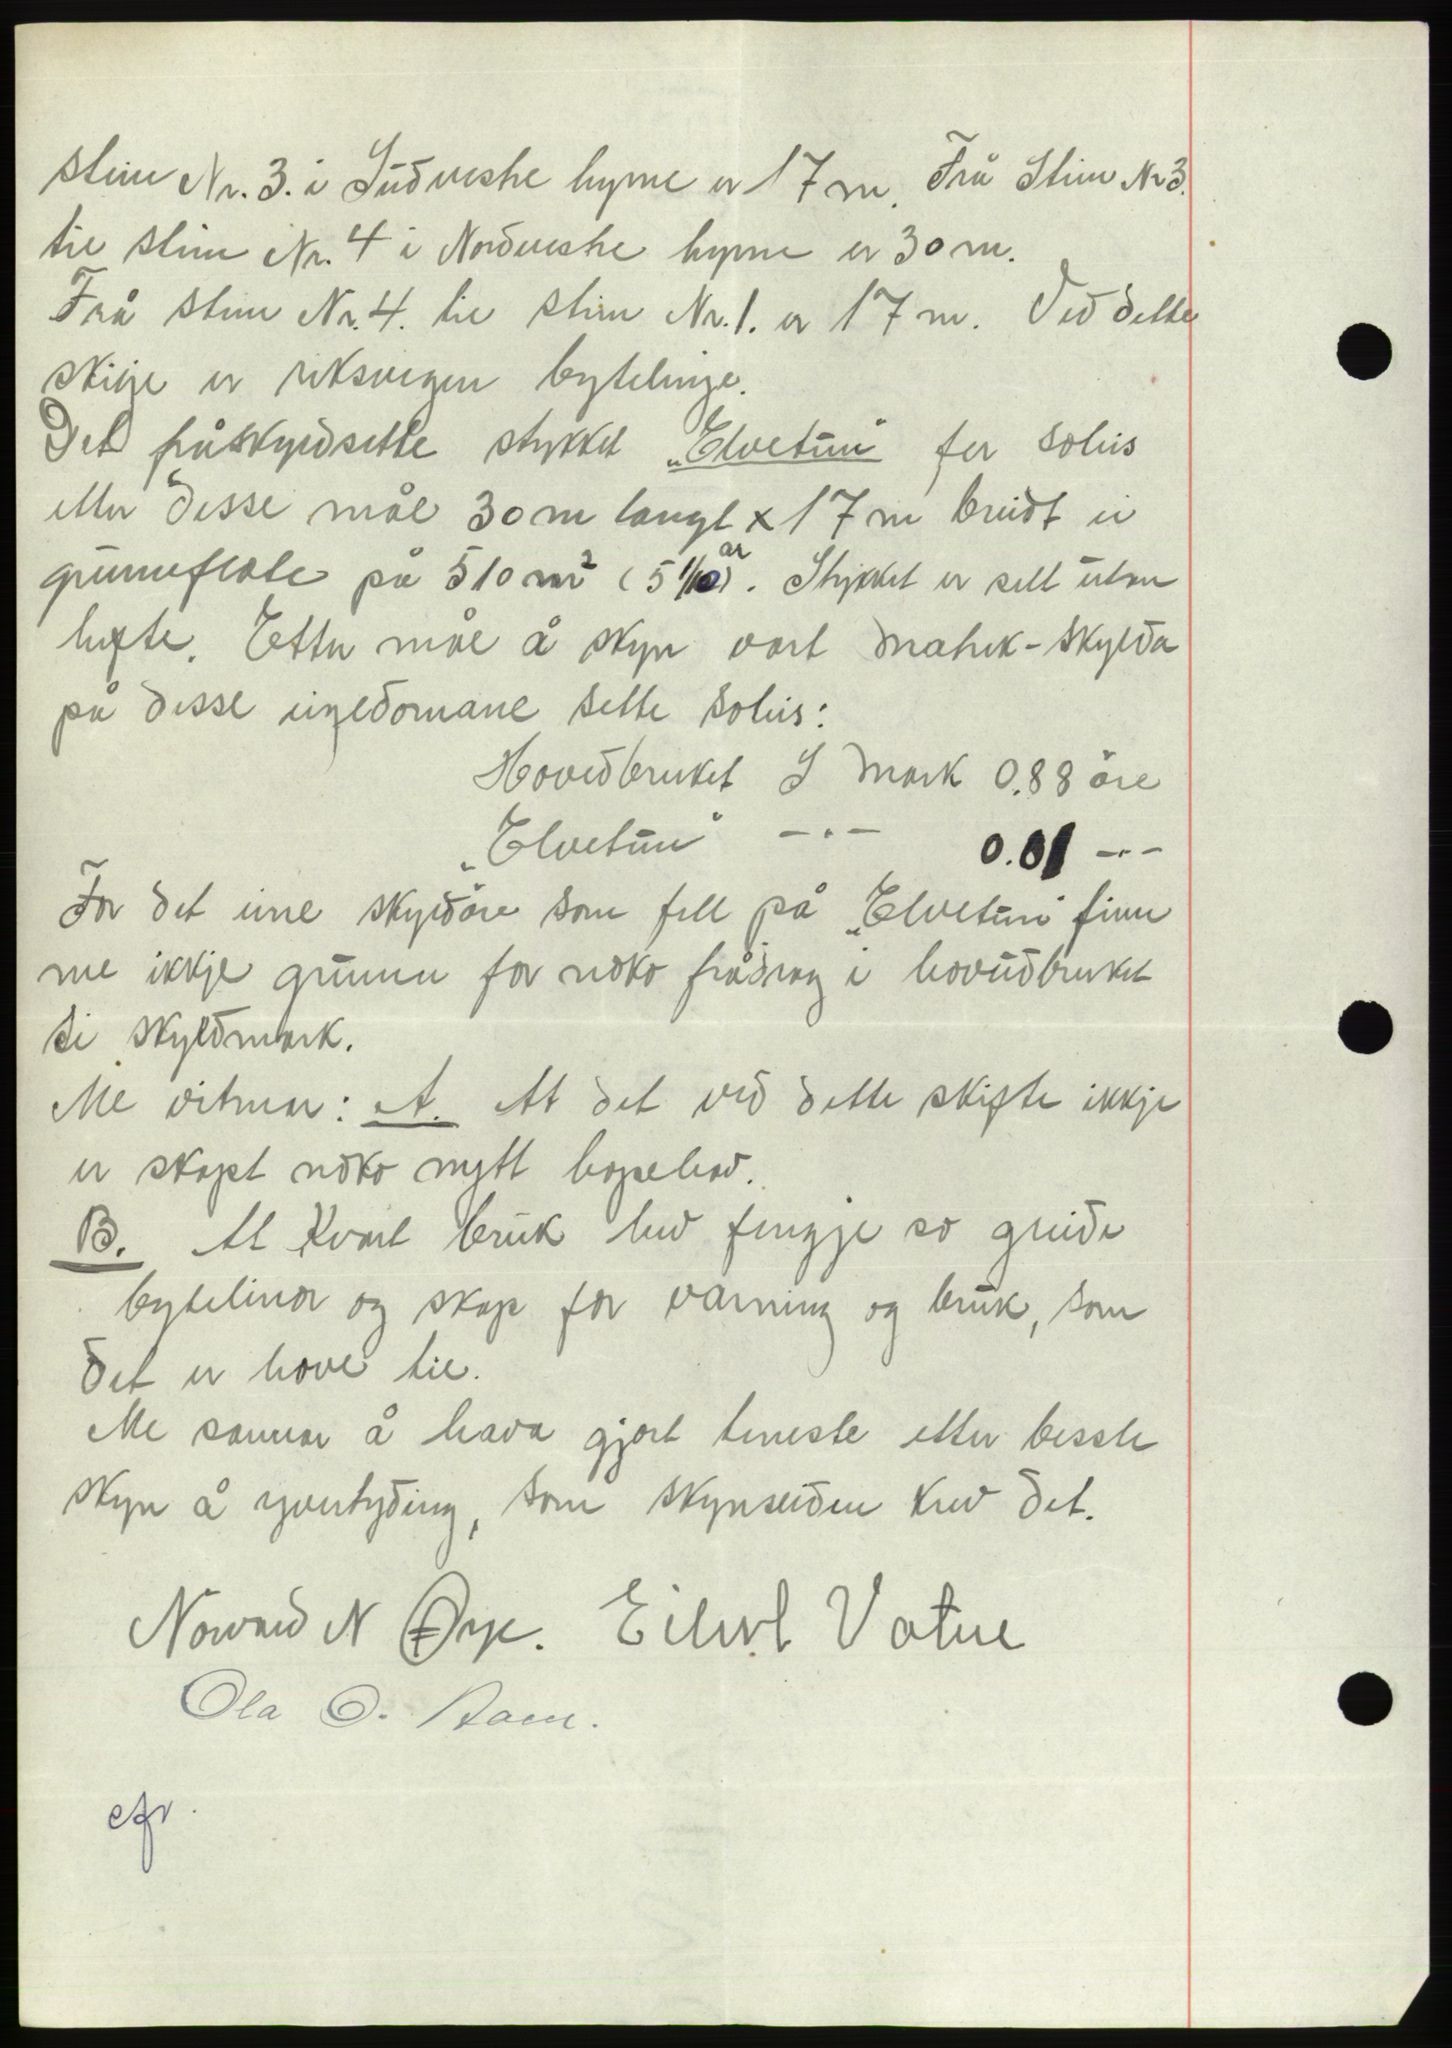 stein Nr. 3. i Sudvestre hyrne er 17 m. Frå Stein Nr 3.
til stein Nr. 4 i Nordvestre hyrne er 30 m.
Frå stein Nr. 4. til stein Nr. 1. er 17 m. Ved dette
skilje er riksvegen bytelinje.
Det fråskyldsette stykket „Elvetun" fer soleis
etter desse mål 30 m langt x 17 m breidt ei
grunnflate på 510 m² (5 1/10 ar). Stykket er selt utan
hefte. Etter mål å skyn vart Matrik-skylda
på desse eigedomane sette soleis:
Hovedbruket I Mark 0.88 öre
„Elvetun" —·— 0.01 —·—
For det eine skyldöre som fell på „Elvetun" finn
me ikkje grunn for noko frådrag i hovudbruket
si skyldmark.
Me vitnar: A. At det ved dette skifte ikkje
er skapt noko nytt hopehav.
B. At kvart bruk hev fengje so greide
bytelinor og skap for varning og bruk, som
det er hove til.
Me sannar å hava gjort teneste etter beste
skyn å yvertyding, som skynseiden krev det.
Norvald N Ørje. Eilert Vatne
Ola O. Aam.
efr.